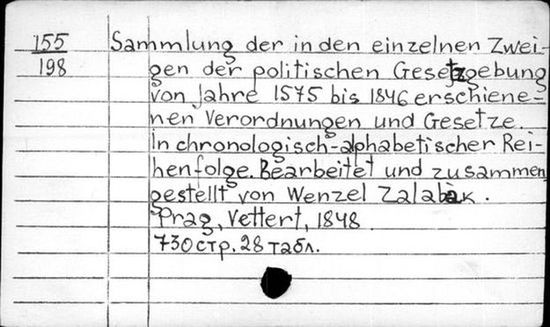 155 Sammlung der in den einzelnen Zwei-
198 gen der politischen Gesetzgebung
von Jahre 1575 bis 1846 erschiene-
nen Verordnungen und Gesetze.
In chronologisch-alphabetischer Rei-
henfolge. Bearbeitet und zusammen
gestellt von Wenzel Zalabak.
Prag, Vettert, 1848
730 стр. 28 табл.